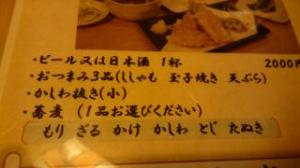 ・ビール又は日本酒 1杯 2000円
・おつまみ3品(ししゃも 玉子焼き 天ぷら)
・かしわ抜き(小)
・蕎麦 (1品お選びください)
もり ざる かけ かしわ とじ たぬき